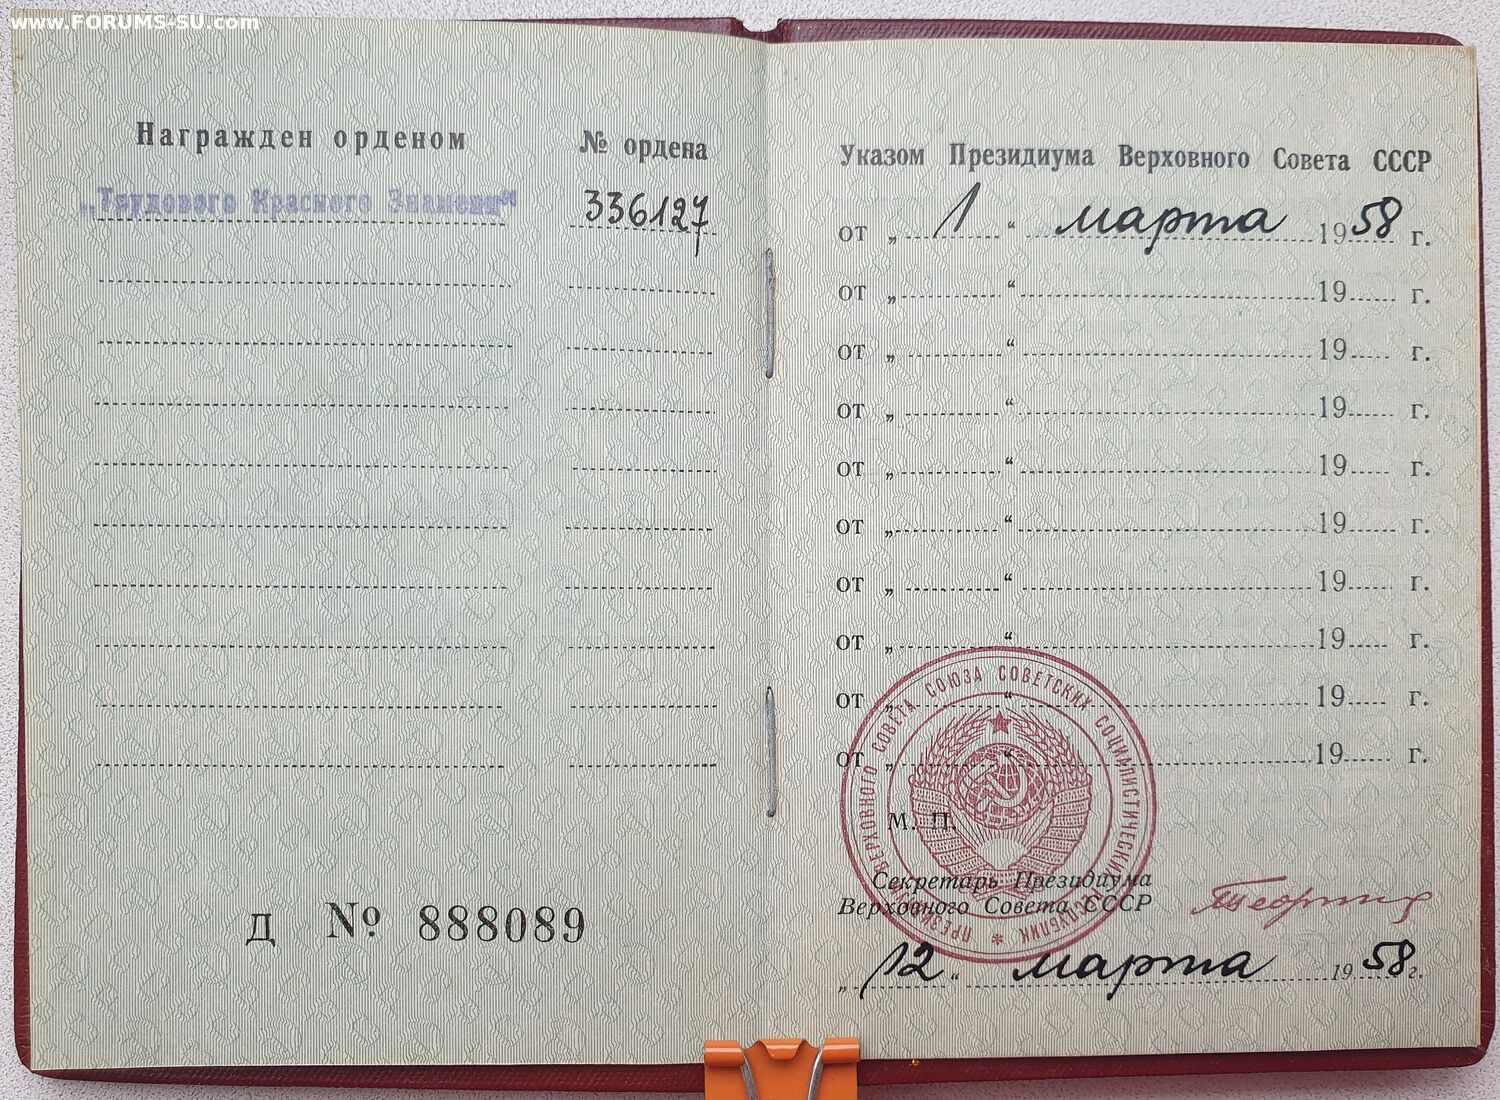 www.FORUMS-SU.com
Награжден орденом
№ ордена
„Трудового Красного Знамени“
336127
Указом Президиума Верховного Совета СССР
от „ 1 “ марта 1958 г.
от „ “ 19 г.
от „ “ 19 г.
от „ “ 19 г.
от „ “ 19 г.
от „ “ 19 г.
от „ “ 19 г.
от „ “ 19 г.
от „ “ 19 г.
от „ “ 19 г.
ПРЕЗИДИУМ ВЕРХОВНОГО СОВЕТА СОЮЗА СОВЕТСКИХ СОЦИАЛИСТИЧЕСКИХ РЕСПУБЛИК
М. П.
Секретарь Президиума
Верховного Совета СССР
„ 12 “ марта 1958 г.
Д № 888089